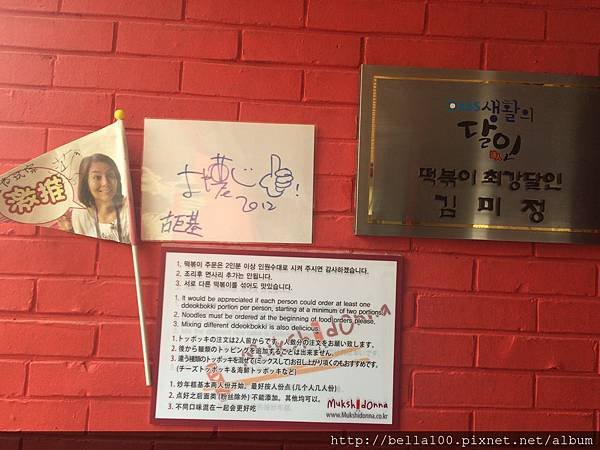 激推
2012
古巨基
SBS 생활의
달인
떡볶이 최강달인
김미정
1. 떡볶이 주문은 2인분 이상 인원수대로 시켜 주시면 감사하겠습니다.
2. 조리후 면사리 추가는 안됩니다.
3. 서로 다른 떡볶이를 섞어도 맛있습니다.
1. It would be appreciated if each person could order at least one
ddeokbokki portion per person, starting at a minimum of two portions.
2. Noodles must be ordered at the beginning of food orders please.
3. Mixing different ddeokbokki is also delicious.
1. トッポッキの注文は2人前からです。人数分の注文をお願い致します。
2. 後から麺類のトッピングを追加することは出来ません。
3. 違う種類のトッポッキを混ぜて(ミックスして)お召し上がり頂くのもおすすめです。
(チーズトッポッキ＆海鮮トッポッキなど)
1. 炒年糕基本两人份开始。最好按人份点 (几个人几人份)
2. 点好之后面类 (粉丝除外) 不能添加。其他均可以。
3. 不同口味混在一起会更好吃
Mukshidonna
Mukshidonna
www.Mukshidonna.co.kr
http://bella100.pixnet.net/album